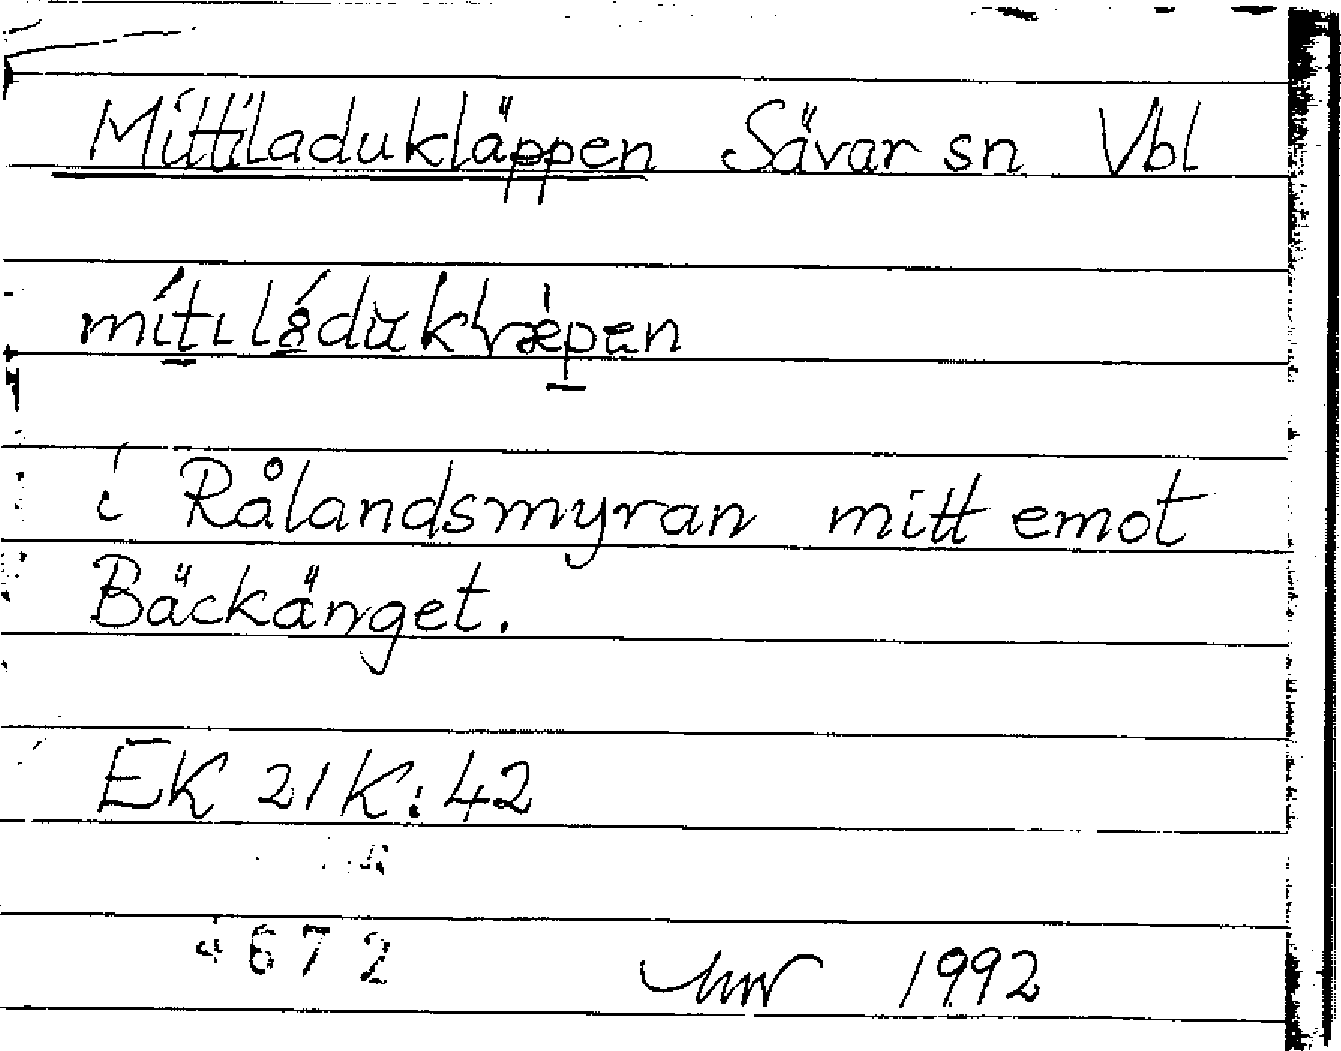 Mittiladukläppen Sävar sn Vbl
i Rålandsmyran mitt emot
Bäckänget.
EK 21K:42
672
1992